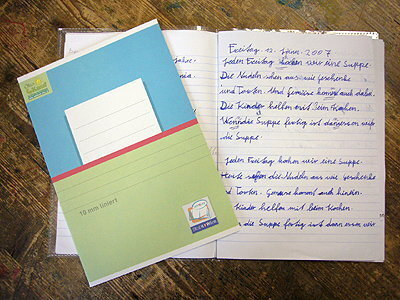 10 mm liniert
Freitag 12. Jann. 2007
Jeden Freitag kochen wir eine Suppe.
Die Nudeln sehen aus wie Geschenke
und Torten. Und Gemüse kommt auch dabei.
Die Kinder helfen mit beim Kochen.
Wenn die Suppe fertig ist dan essen wir
die Suppe.
Jeden Freitag kochen wir eine Suppe.
Heute sehen die Nudeln aus wie Geschenke
und Torten. Gemüse kommt auch hinein.
Kinder helfen mit beim Kochen.
die Suppe fertig ist dann essen wir